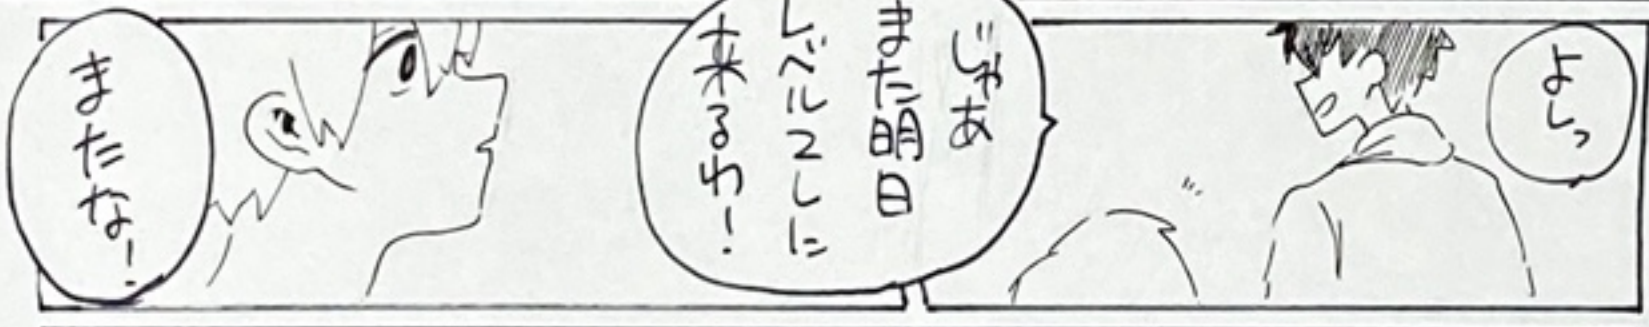 よしっ
じゃあ
また明日
レベル2しに
来るわ!
またな!